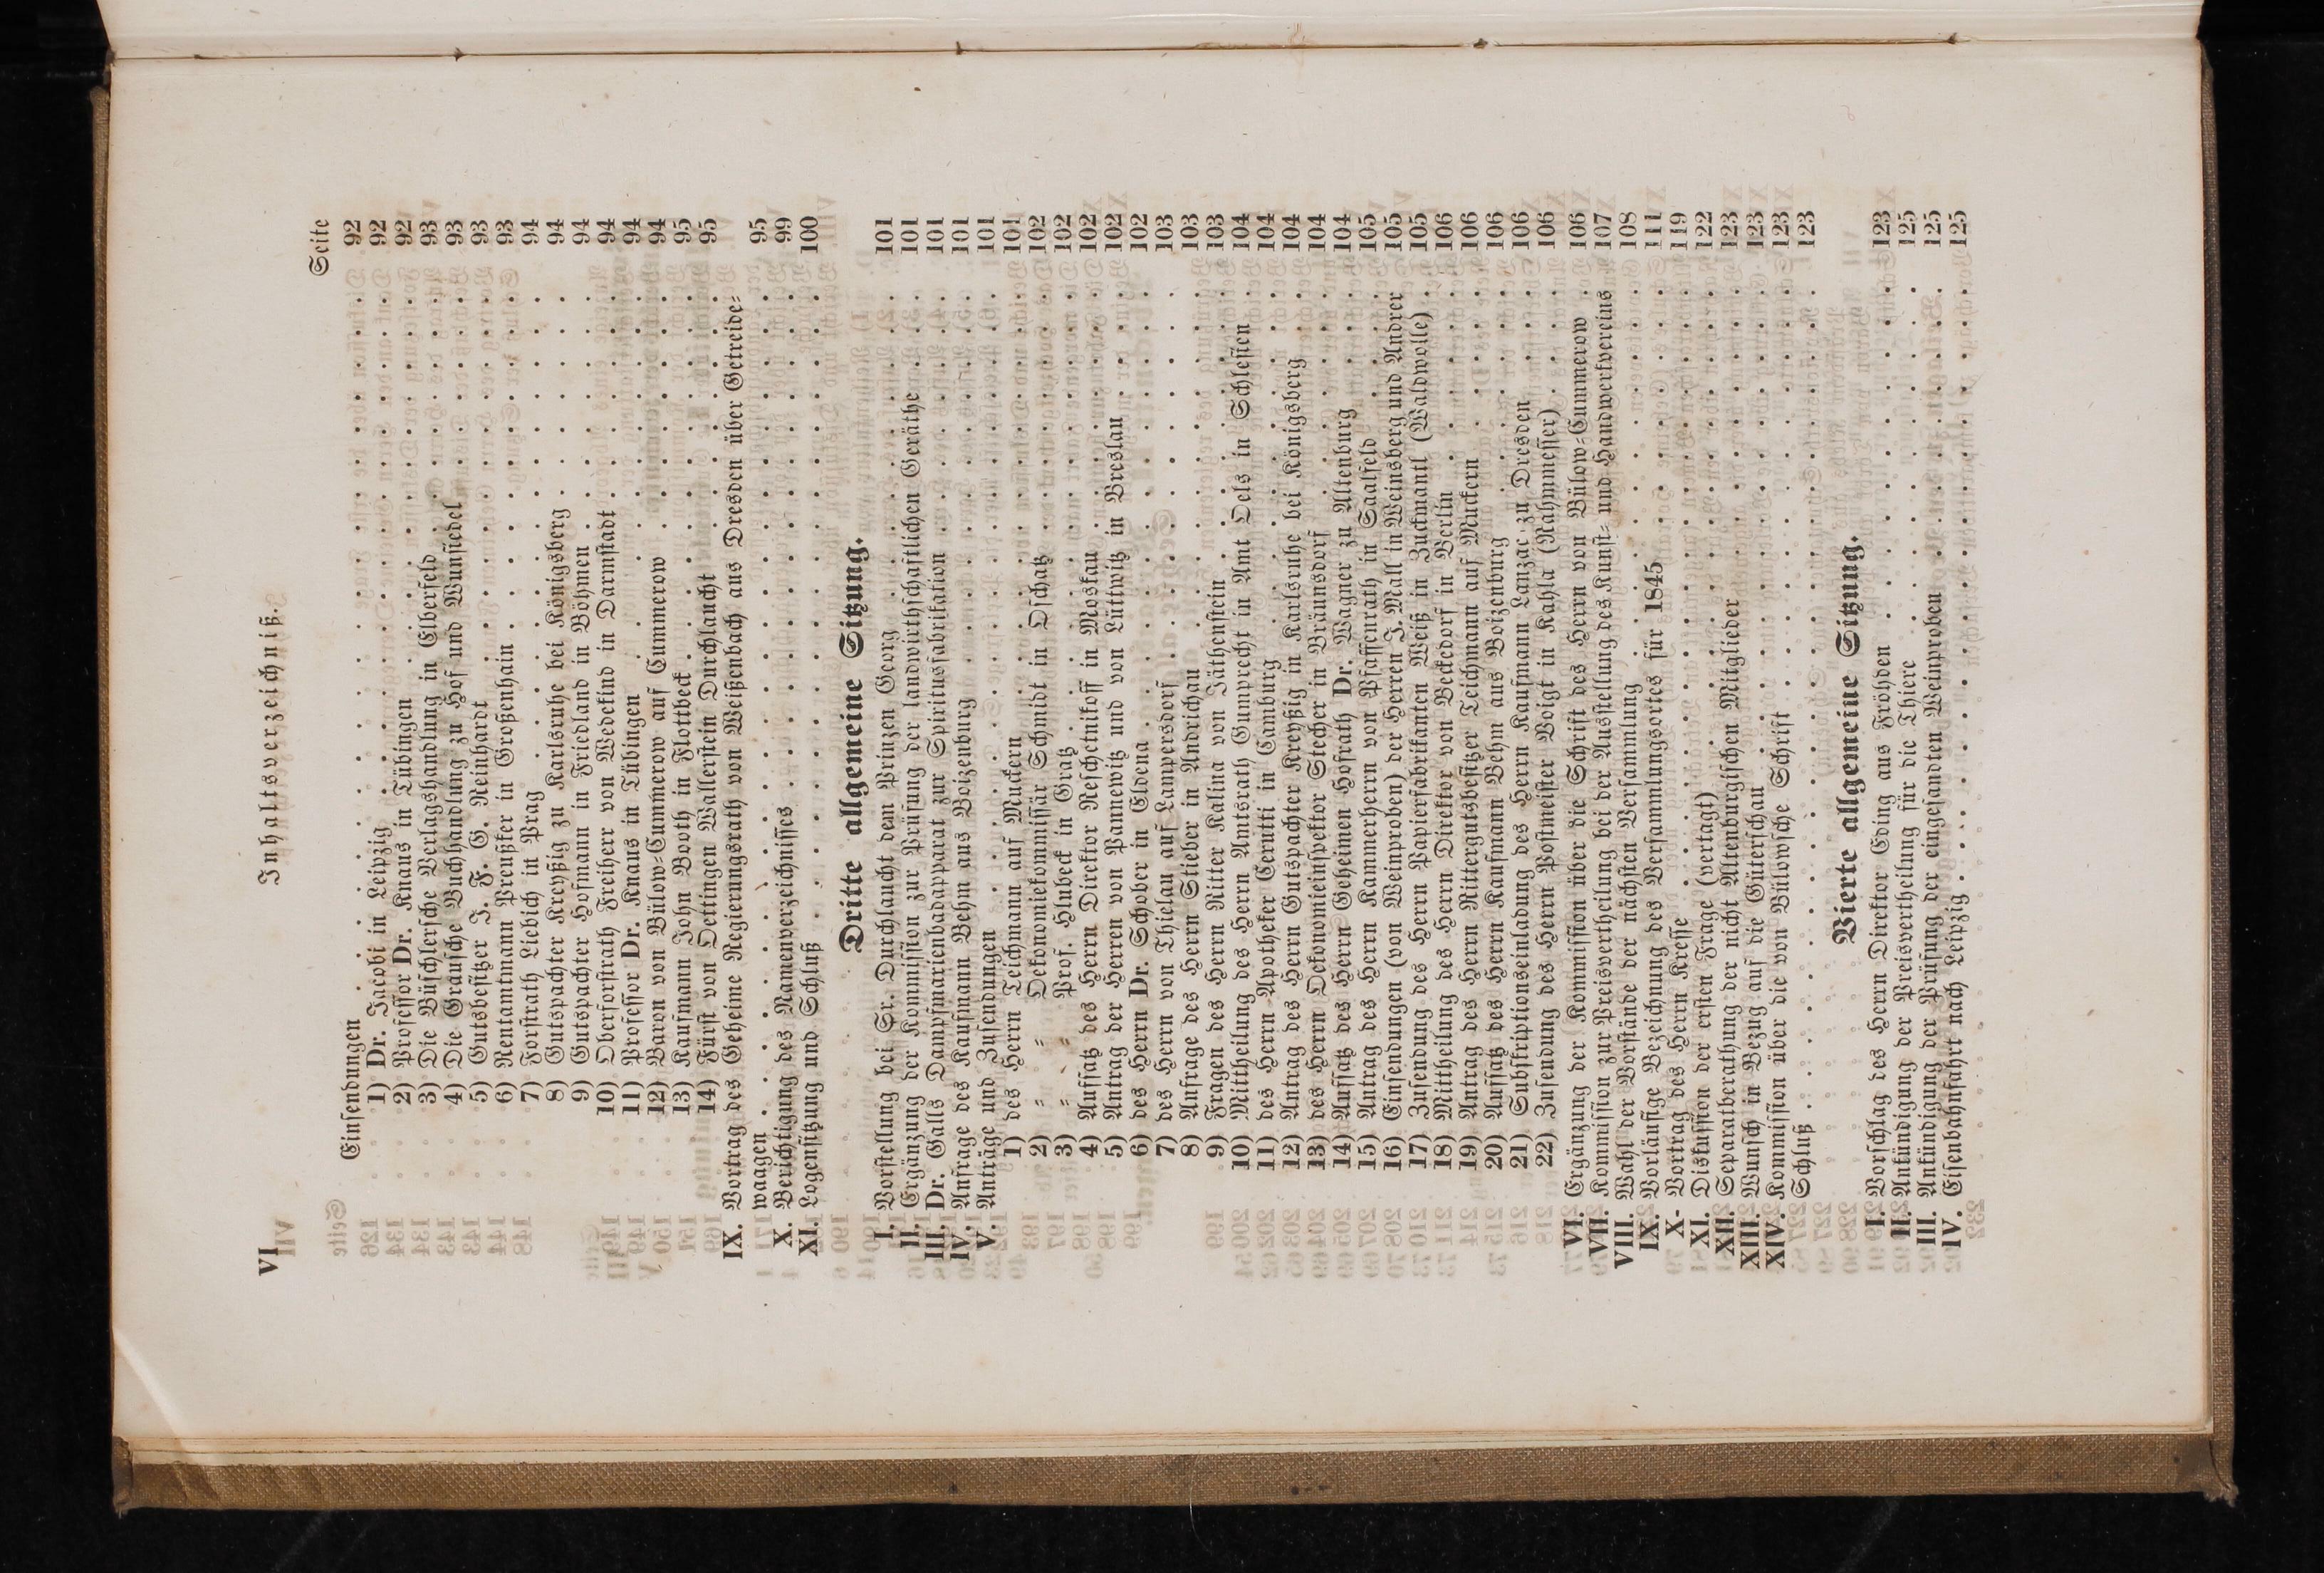 VI Inhaltsverzeichniß.
Seite
Einsendungen . . . . . . . . . . 92
1) Dr. Jacobi in Leipzig . . . . . . . . . . 92
2) Professor Dr. Knaus in Tübingen . . . . . . . . . . 92
3) Die Büschlersche Verlagshandlung in Elberfeld . . . . . . . . . . 93
4) Die Grausche Buchhandlung zu Hof und Wunsiedel . . . . . . . . . . 93
5) Gutsbesitzer J. F. G. Reinhardt . . . . . . . . . . 93
6) Rentamtmann Preußker in Großenhain . . . . . . . . . . 93
7) Forstrath Liebich in Prag . . . . . . . . . . 94
8) Gutspachter Kreyßig zu Karlsruhe bei Königsberg . . . . . . . . . . 94
9) Gutspachter Hofmann in Friedland in Böhmen . . . . . . . . . . 94
10) Oberforstrath Freiherr von Wedekind in Darmstadt . . . . . . . . . . 94
11) Professor Dr. Knaus in Tübingen . . . . . . . . . . 94
12) Baron von Bülow=Cummerow auf Cummerow . . . . . . . . . . 94
13) Kaufmann John Booth in Flottbeck . . . . . . . . . . 95
14) Fürst von Oettingen Wallerstein Durchlaucht . . . . . . . . . . 95
IX. Vortrag des Geheime Regierungsrath von Weißenbach aus Dresden über Getreide=
wagen . . . . . . . . . . 95
X. Berichtigung des Namenverzeichnisses . . . . . . . . . . 99
XI. Logensitzung und Schluß . . . . . . . . . . 100
Dritte allgemeine Sitzung.
I. Vorstellung bei Sr. Durchlaucht dem Prinzen Georg . . . . . . . . . . 101
II. Ergänzung der Kommission zur Prüfung der landwirthschaftlichen Geräthe . . . . . 101
III. Dr. Galls Dampfmarienbadapparat zur Spiritusfabrikation . . . . . . . . . . 101
IV. Anfrage des Kaufmann Behm aus Boizenburg . . . . . . . . . . 101
V. Anträge und Zusendungen . . . . . . . . . . 101
1) des Herrn Teichmann auf Muckern . . . . . . . . . . 101
2) = = Oekonomiekommissär Schmidt in Oschatz . . . . . . . . . . 102
3) = = Prof. Hlubeck in Gratz . . . . . . . . . . 102
4) Aufsatz des Herrn Direktor Reschetnikoff in Moskau . . . . . . . . . . 102
5) Antrag der Herren von Pannewitz und von Lüttwitz in Breslau . . . . . 102
6) des Herrn Dr. Schober in Eldena . . . . . . . . . . 102
7) des Herrn von Thielau auf Lampersdorf . . . . . . . . . . 103
8) Anfrage des Herrn Stieber in Andrichau . . . . . . . . . . 103
9) Fragen des Herrn Ritter Kalina von Jäthenstein . . . . . . . . . . 103
10) Mittheilung des Herrn Amtsrath Gumprecht in Amt Oels in Schlesien . . . 104
11) des Herrn Apotheker Cerutti in Camburg . . . . . . . . . . 104
12) Antrag des Herrn Gutspachter Kreyßig in Karlsruhe bei Königsberg . . . 104
13) des Herrn Oekonomieinspektor Stecher in Bräunsdorf . . . . . . . . . . 104
14) Aufsatz des Herrn Geheimen Hofrath Dr. Wagner zu Altenburg . . . . . 104
15) Antrag des Herrn Kammerherrn von Pfaffenrath in Saalfeld . . . . . 105
16) Einsendungen (von Weinproben) der Herren J. Mall in Weinsberg und Andrer 105
17) Zusendung des Herrn Papierfabrikanten Weiß in Zuckmantl (Waldwolle) . 105
18) Mittheilung des Herrn Direktor von Beckedorf in Berlin . . . . . . . . . . 106
19) Antrag des Herrn Rittergutsbesitzer Teichmann auf Muckern . . . . . 106
20) Aufsatz des Herrn Kaufmann Behn aus Boizenburg . . . . . . . . . . 106
21) Subskriptionseinladung des Herrn Kaufmann Lanzac zu Dresden . . . . . 106
22) Zusendung des Herrn Postmeister Voigt in Kahla (Rahmmesser) . . . . . 106
VI. Ergänzung der Kommission über die Schrift des Herrn von Bülow=Cummerow . 106
VII. Kommission zur Preisvertheilung bei der Ausstellung des Kunst= und Handwerkvereins 107
VIII. Wahl der Vorstände der nächsten Versammlung . . . . . . . . . . 108
IX. Vorläufige Bezeichnung des Versammlungsortes für 1845 . . . . . . . . . . 111
X- Vortrag des Herrn Kresse . . . . . . . . . . 119
XI. Diskussion der ersten Frage (vertagt) . . . . . . . . . . 122
XII. Separatberathung der nicht Altenburgischen Mitglieder . . . . . . . . . . 123
XIII. Wunsch in Bezug auf die Güterschau . . . . . . . . . . 123
XIV. Kommission über die von Bülowsche Schrift . . . . . . . . . . 123
Schluß . . . . . . . . . . 123
Vierte allgemeine Sitzung.
I. Vorschlag des Herrn Direktor Eding aus Fröhden . . . . . . . . . . 123
II. Ankündigung der Preisvertheilung für die Thiere . . . . . . . . . . 125
III. Ankündigung der Prüfung der eingesandten Weinproben . . . . . . . . . . 125
IV. Eisenbahnfahrt nach Leipzig . . . . . . . . . . 125